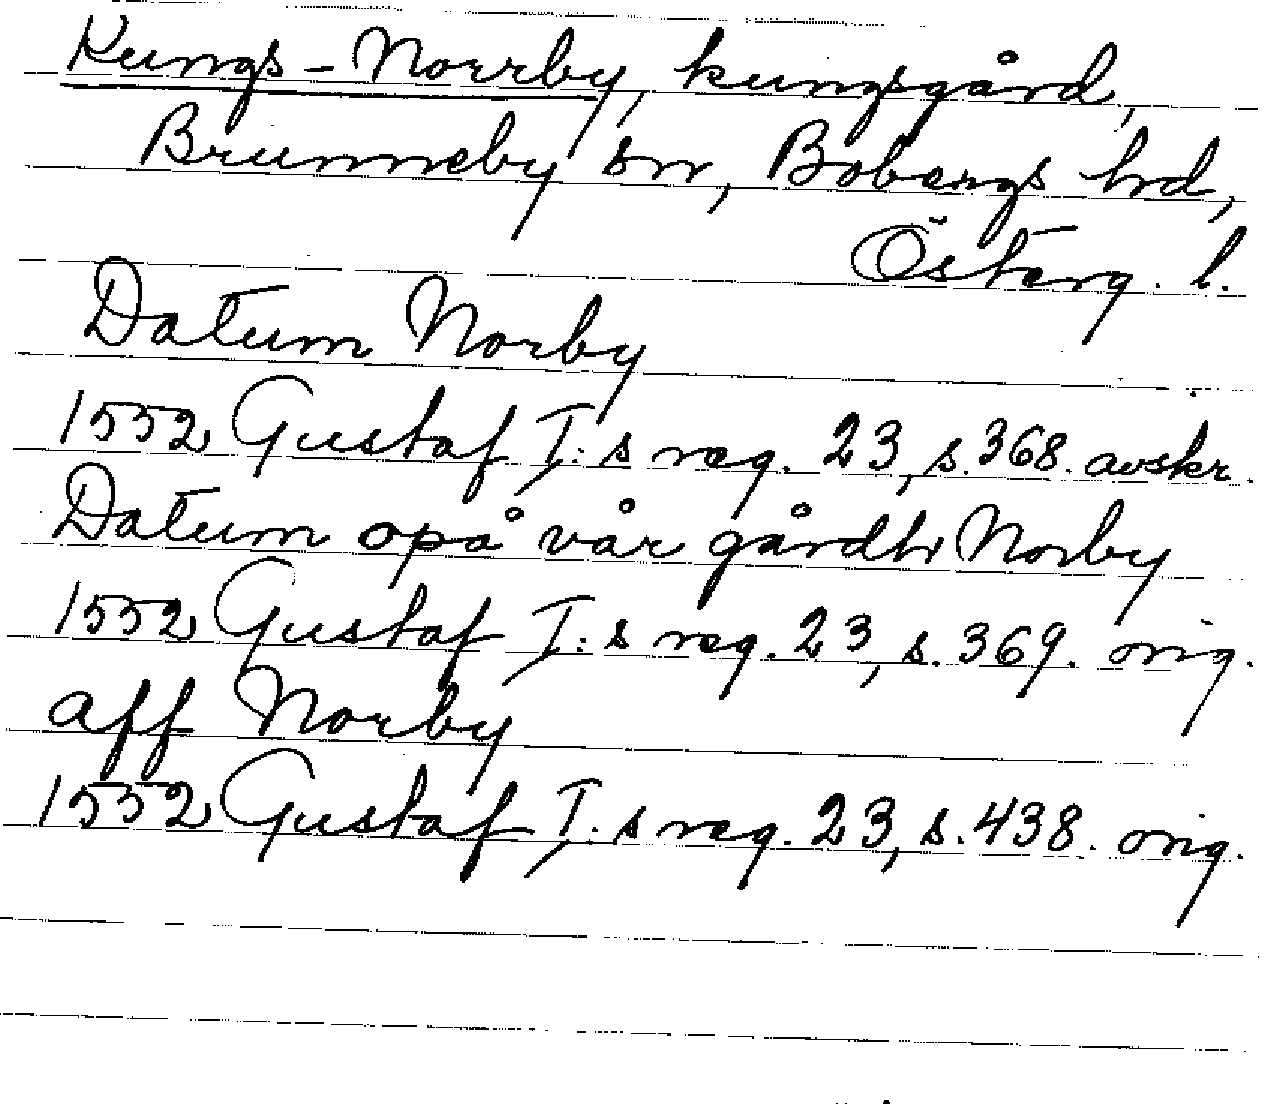 Kungs-Norrby, kungsgård,
Brunneby sn, Bobergs hd,
Österg. l.
Datum Norby
1552 Gustaf I:s reg. 23, s. 368. avskr.
Datum opå vår gårdh Norby
1552 Gustaf I:s reg. 23, s. 369. orig.
aff Norby
1552 Gustaf I:s reg. 23, s. 438. orig.